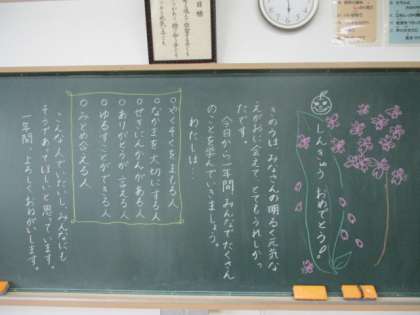 しんきゅう おめでとう。
きのうは みなさんの 明るく元気な
えがおに 会えて、とてもうれしかっ
たです。
今日から一年間 みんなでたくさん
のことを学んでいきましょう。
わたしは…
○やくそくをまもる人
○なかまを大切にする人
○せきにんかんがある人
○ありがとうが言える人
○ゆるすことができる人
○みとめ合える人
こんな人でいたいし、みんなにも
そうであってほしいと思っています。
一年間、よろしくおねがいします。